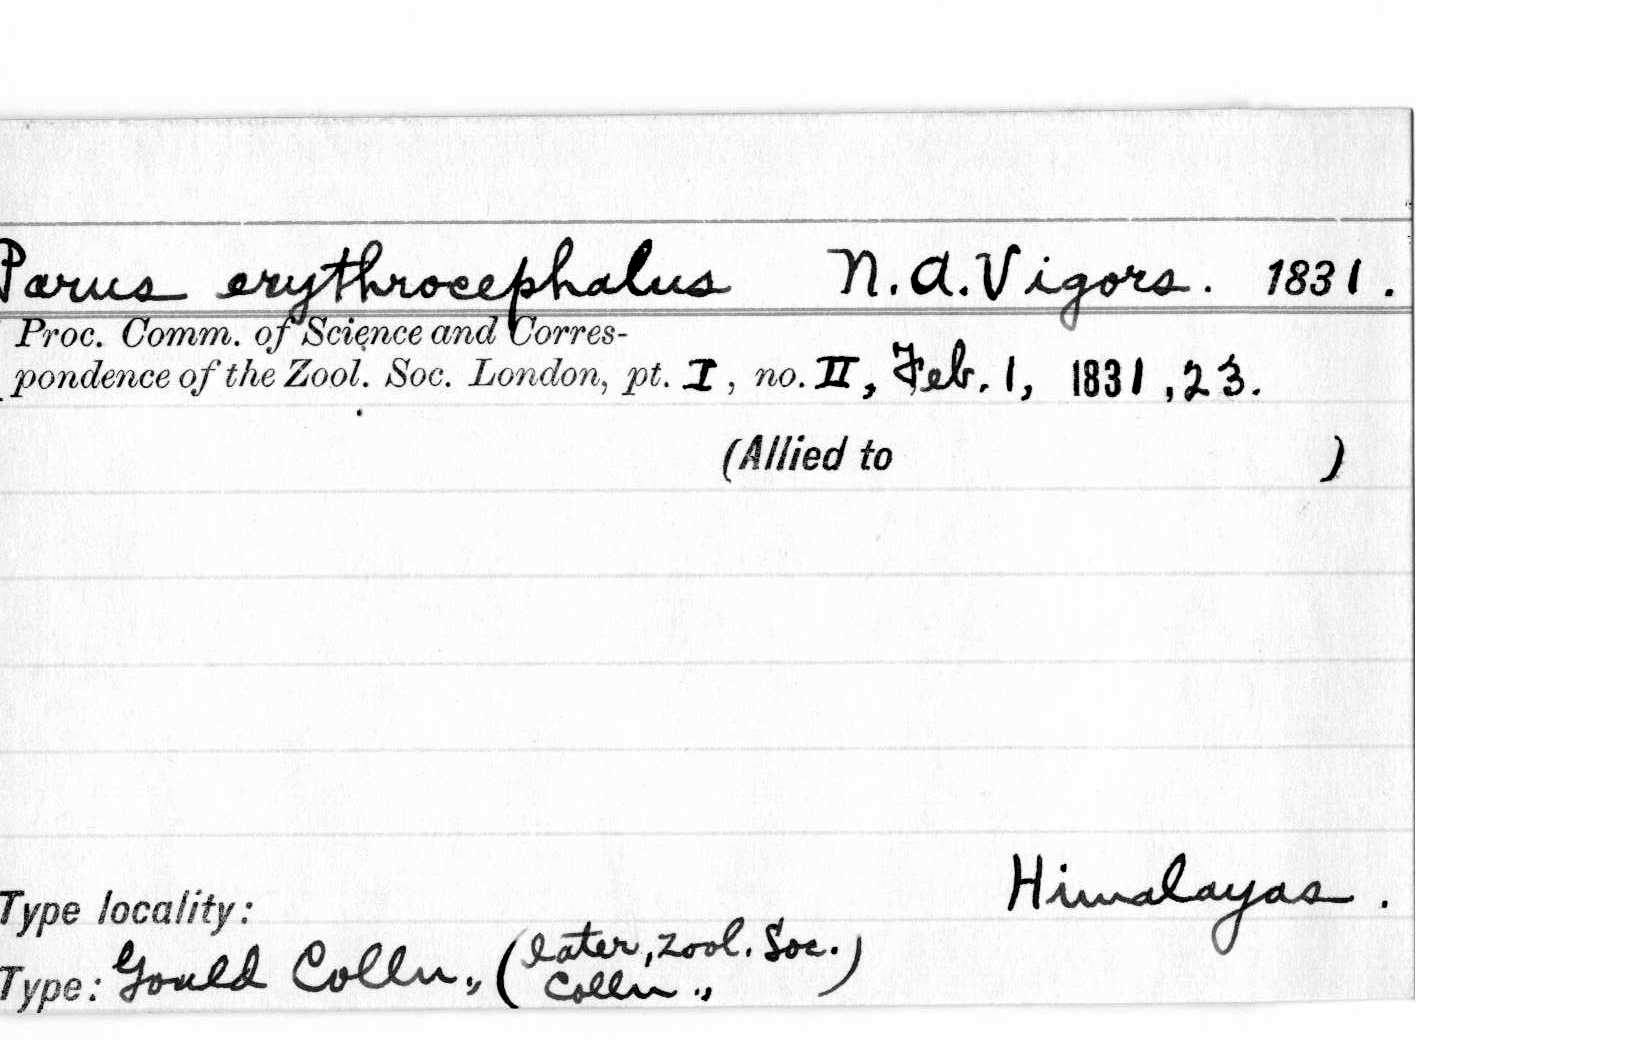 Parus erythrocephalus N.A.Vigors. 1831.
Proc. Comm. of Science and Corres-
pondence of the Zool. Soc. London, pt. I, no. II, Feb. 1, 1831, 23.
(Allied to )
Type locality: Himalayas.
Type: Gould Colln., (later, Zool. Soc.
Colln.,)